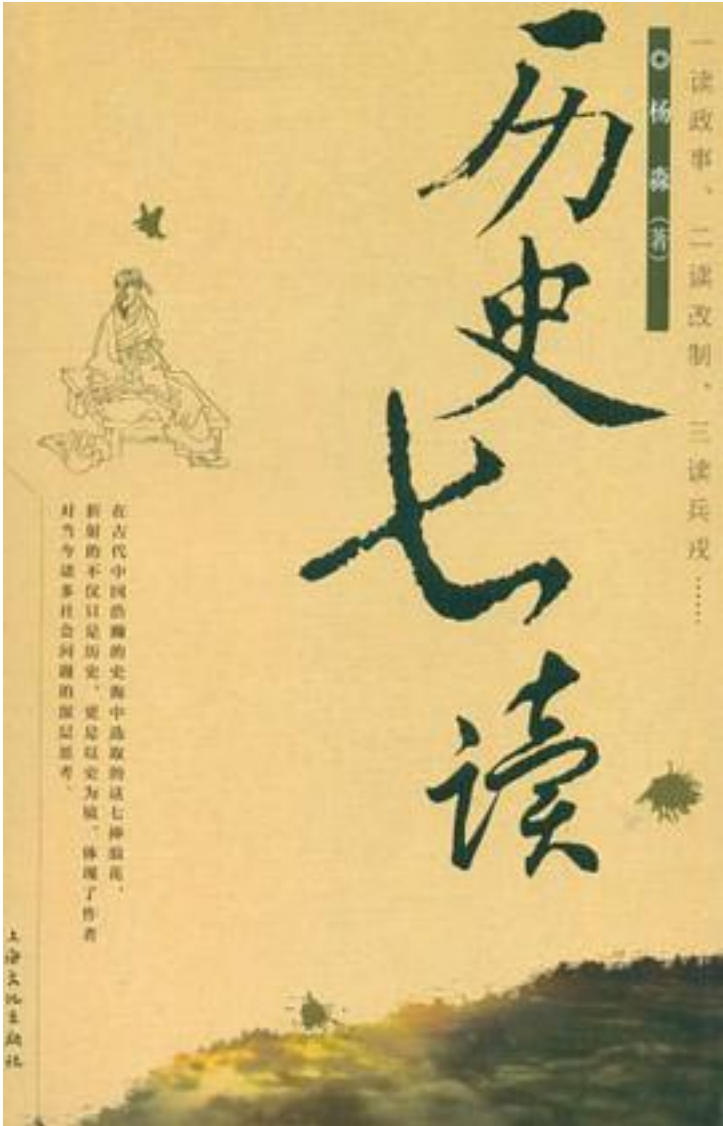 一读政事、二读改制、三读兵戎……
杨森（著）
历史七读
在古代中国浩瀚的史海中选取的这七捧浪花，
折射的不仅只是历史，更是以史为镜，体现了作者
对当今诸多社会问题的深层思考。
上海文化出版社